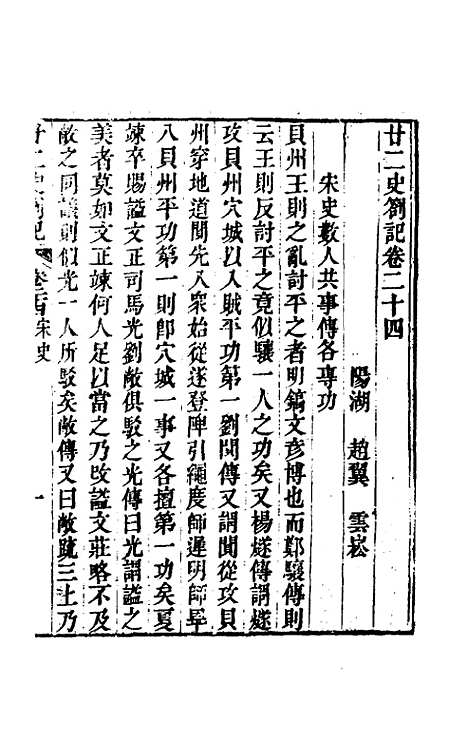 廿二史劄記卷二十四
陽湖 趙翼 雲崧
宋史數人共事傳各專功
貝州王則之亂討平之者明鎬文彥博也而鄭驤傳則
云王則反討平之竟似驤一人之功矣又楊燧傳謂燧
攻貝州穴城以入賊平功第一劉闃傳又謂闃從攻貝
州穿地道闃先入衆始從遂登陴引繩度師遲明師畢
入貝州平功第一則卽穴城一事又各擅第一功矣夏
竦卒賜謚文正司馬光劉敞俱駁之光傳曰光謂謚之
美者莫如文正竦何人足以當之乃改謚文莊略不及
敞之同議則似光一人所駁矣敞傳又曰敞疏三上乃
廿二史劄記 卷二十四 宋史 一